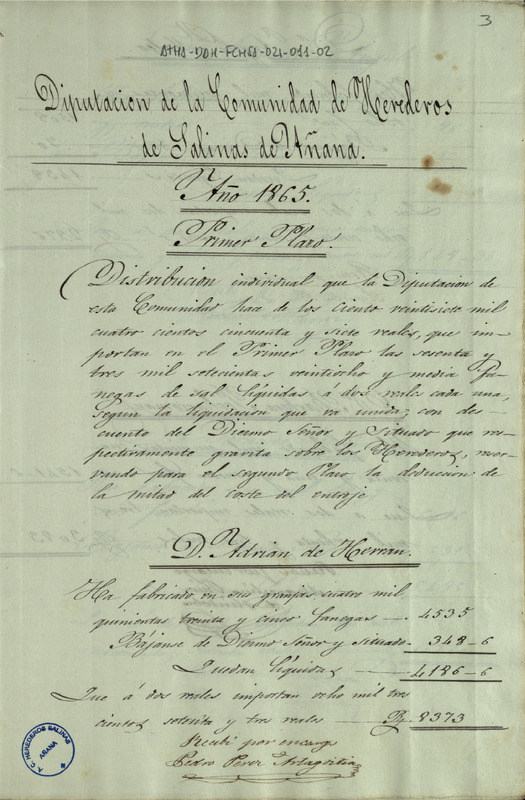 3
ATHA-DAH-FCHSA-021-011-02
Diputacion de la Comunidad de Herederos
de Salinas de Añana.
Año 1865.
Primer Plazo.
Distribucion individual que la Diputacion de
esta Comunidad hace de los ciento veintisiete mil
cuatro cientos cincuenta y siete reales, que im-
portan en el Primer Plazo las sesenta y
tres mil setecientas veintiocho y media fa-
negas de sal líquidas á dos reales cada una,
segun la liquidacion que va unida; con des-
cuento del Diezmo Señor y Situado que res-
pectivamente gravita sobre los Herederos, reser-
vando para el segundo Plazo la deduccion de
la mitad del coste del entroje
D.n Adrian de Herran.
Ha fabricado en sus granjas cuatro mil
quinientas treinta y cinco fanegas 4535
Bájanse de Diezmo Señor y situado 348-6
Quedan líquidas 4186-6
Que á dos reales importan ocho mil tres
cientos setenta y tres reales 8373
Recibi por encargo
Pedro Perez Artagoitia
A.C. HEREDEROS SALINAS
AÑANA